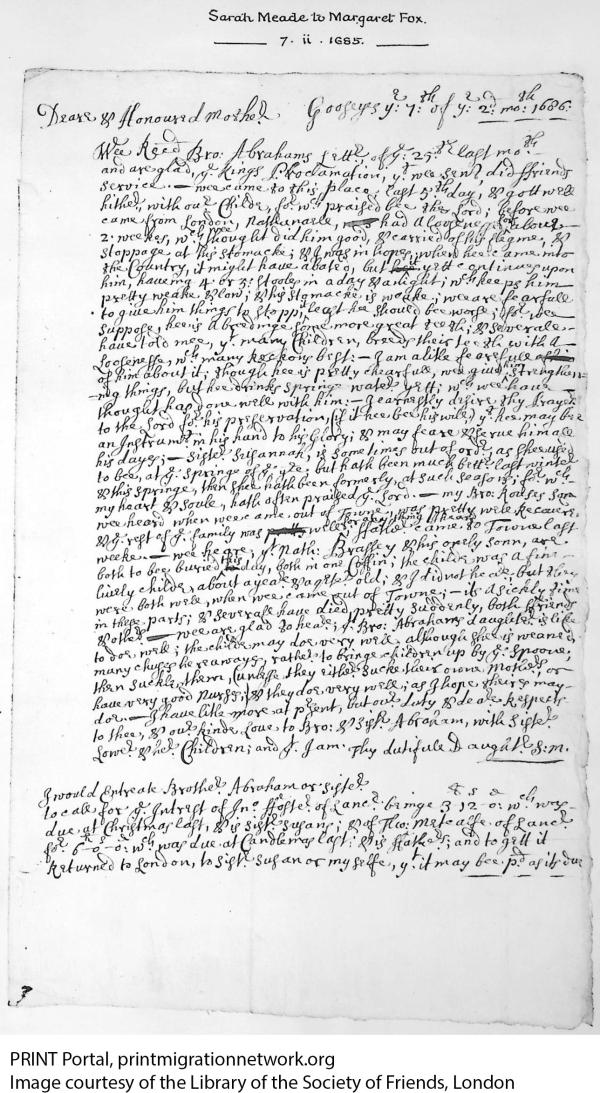 Sarah Meade to Margaret Fox.
7. ii. 1685.
Deare & Honoured Mother Gooseys yᵉ 7th of yᵉ 2d mo: 1686:
Wee Recd Bro: Abrahams Letter of yᵉ 25th last moth
and are glad, yᵉ Kings Proclamation, yt wee sent, did ffriends
service. — wee came to this place, last 5th day, & gott well
hither, with our Childe, for wch praised bee the Lord; before wee
came from London, Nathaniell, had a Loosenes for about
2: weekes, wch wee thought did him good, & carried of his flegme, &
stoppage at his stomacke; & I was in hopes, when hee came into
the Country, it might have abated, but yett continues upon
him, haveing 4 or 5: stooles in a day & a night; wch keeps him
pretty weake & low; & his stomacke is weake; wee are fearfull
to give him things to stopp it, least hee should bee worse; for wee
suppose, hee is a breedinge some more great teeth; & severall
have told mee, yt many Children, breed their teeth with a
Loosenesse, wch many reckons best: — I am alike fearefull
of him about it; though hee is pretty chearfull, wee give strengthen-
ing things, but hee drinks Springe water yett; wch wee have
thought has done well with him: — I earnestly disire thy Prayers
to the Lord for his preservation, (if it bee his will) yt hee may bee
an Instrumt in his hand to his Glory; & may feare & serve him all
his dayes; — Sister Susannah, is sometimes out of order, as shee used
to bee, at yᵉ Springe of yᵉ yeare; but hath been much better last winter
& this Springe, then shee hath been formerly, at such seasons; for wch
my heart & Soule, hath often praised yᵉ Lord. — my Bro: Rouses Son
wee heard when wee came out of Towne, was pretty well Recovered
& yᵉ rest of yᵉ family was well; ffather came to Towne last
weeke. — wee heare, yt Nath: Brassey & his onely sonn, are
both to bee buried this day, both in one Coffin; the childe was a fine
lively childe, about a yeare & a halfe old; & I did not heare, but they
were both well, when wee came out of Towne; — its a sickly time
in these parts; & severall have died pretty suddenly, both ffriends
& others — wee are glad to heare, yᵉ Bro: Abrahams daughter is like
to doe well; the childe may doe very well although shee is weaned,
many chuses hereaways, rather to bringe children up by yᵉ Spoone,
then suckle them, (unlesse they either sucke their owne Mothers, or
have very good Nurses;) & they doe very well; as I hope theirs may
doe. — I have little more at psent, but our duty & deare Respects
to thee, & our kinde Love to Bro: & Sister Abraham, with Sister
Lower & her Children; and I am Thy dutifull Daughter S:M.
I would Entreate Brother Abraham or Sister
to call for yᵉ Intrest of Jno ffoster of Lancr beinge 3-12-0: wch was
due at Christmas last, & is Sister Susans; & of Tho: Metcalfe of Lancr
for 6-0-0: wch was due at Candlemas last: & is ffathers; and to gett it
Returned to London, to Sister Susan or my selfe, yt it may bee pd as its due
PRINT Portal, printmigrationnetwork.org
Image courtesy of the Library of the Society of Friends, London